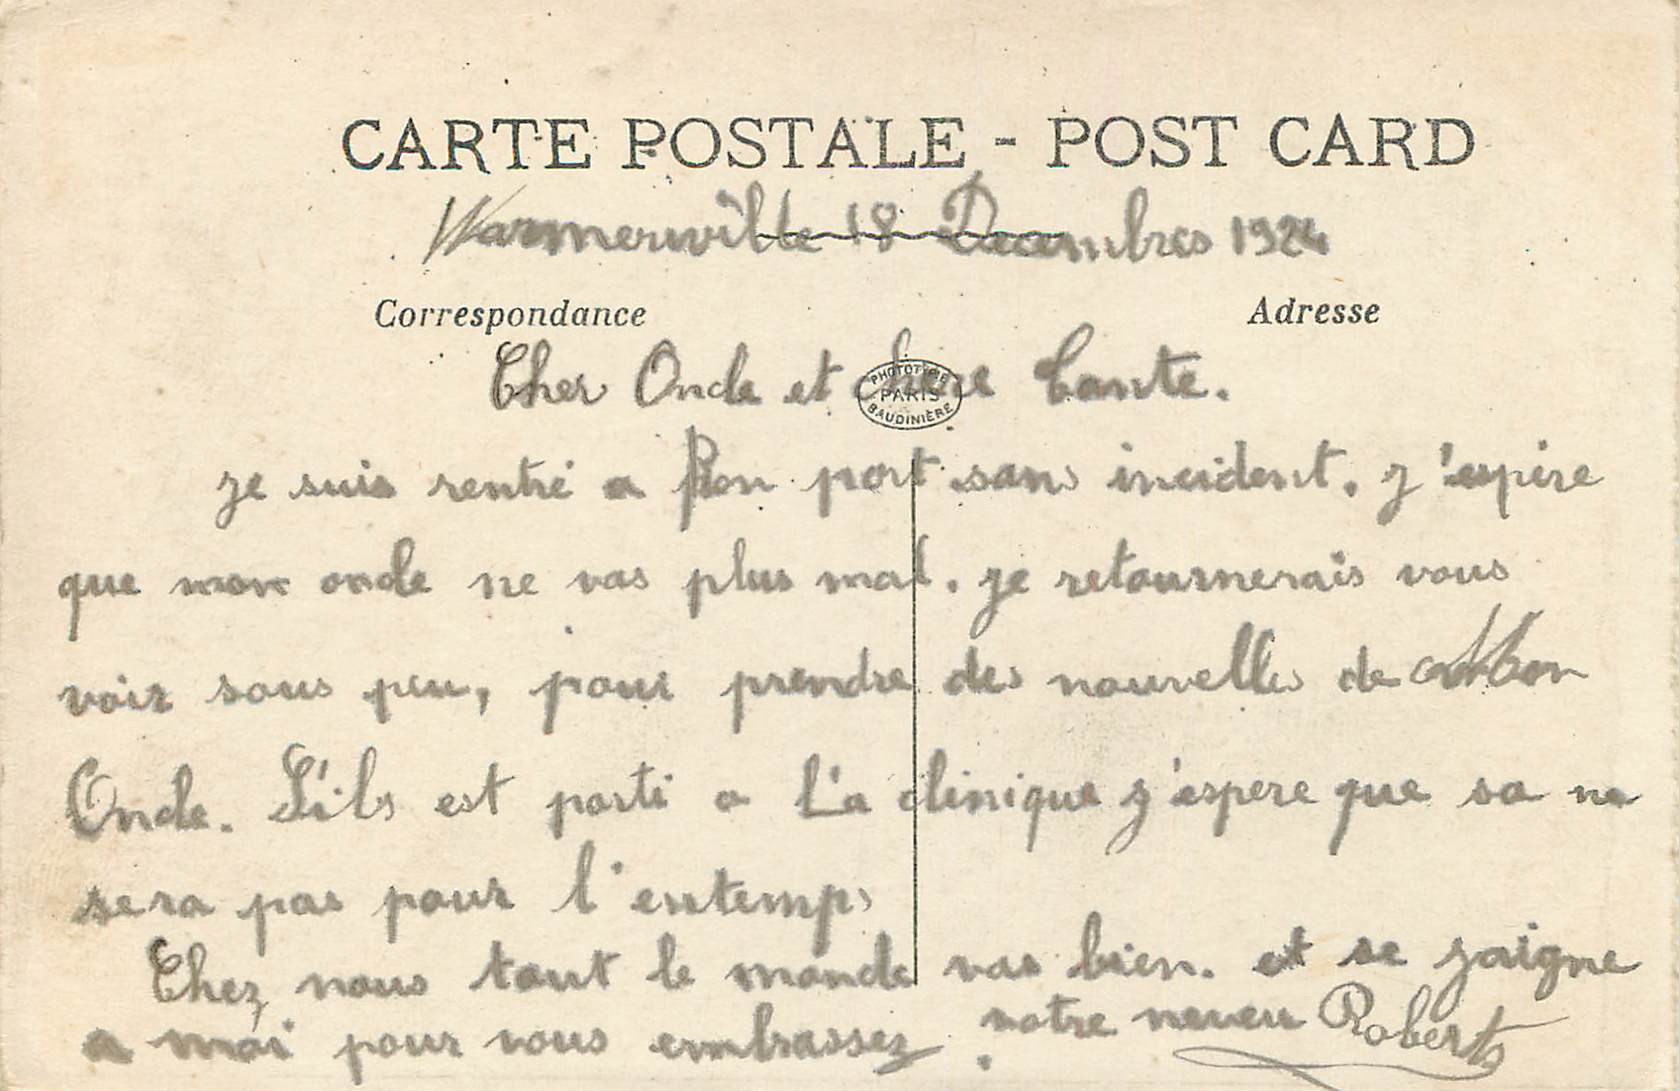 CARTE POSTALE - POST CARD
Warmeriville 18 Decembres 1924
Correspondance
Adresse
Cher Oncle et chere tante.
PHOTOTYPIE
PARIS
BAUDINIÈRE
je suis rentré a Bon port sans incident. j'espère
que mon oncle ne vas plus mal. je retournerais vous
voir sous peu, pour prendre des nouvelles de Mon
Oncle. S'ils est parti a La clinique j'espere que sa ne
sera pas pour l'entemps
Chez nous tout le monde vas bien. et se joigne
a moi pour vous embrassez. notre neveu Roberts